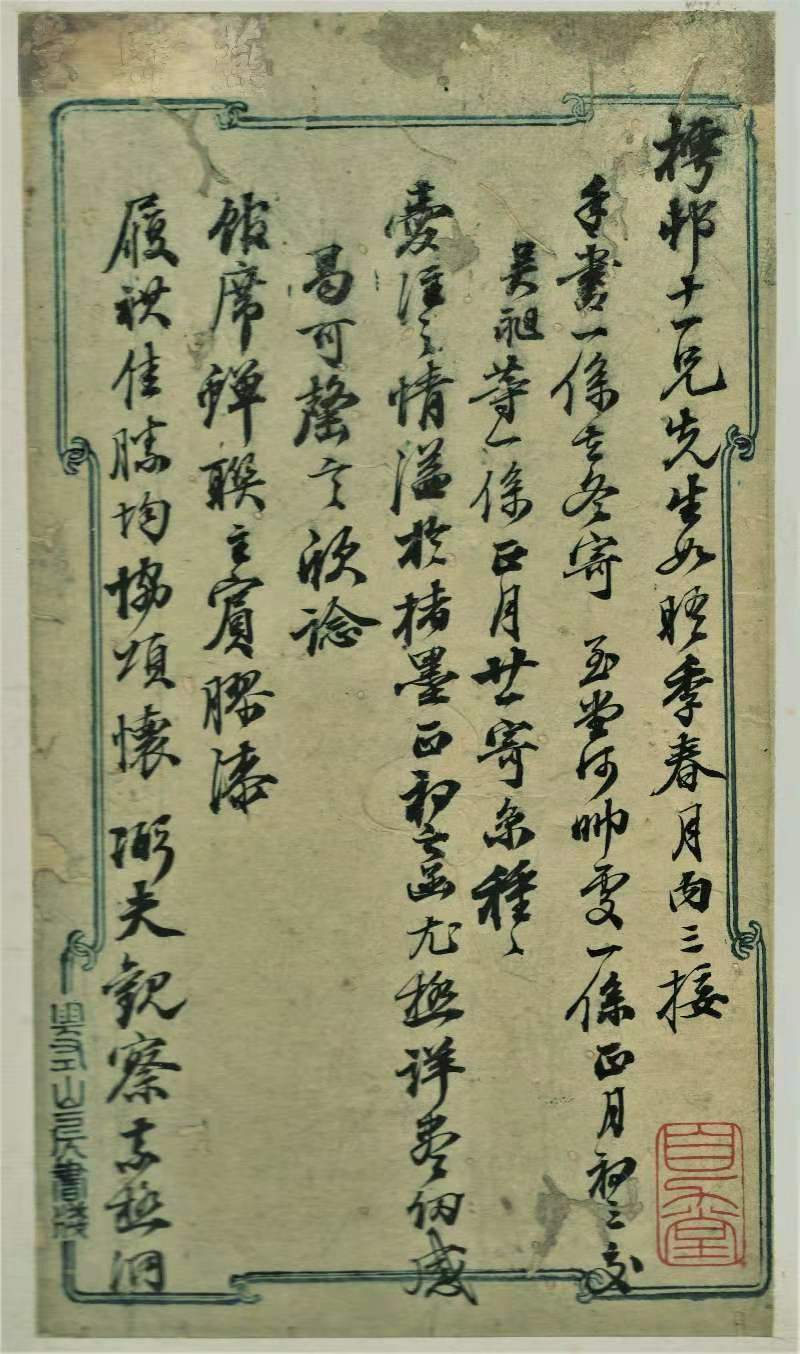 樗邨十一兄先生如晤季春月内三接
手書一係去冬寄 玉堂河帥處一係正月初三交
吴祖等一係正月廿一寄京種種
愛注之情溢於楮墨正初之函尤極詳尽佩感
曷可罄言欣諗
館席蟬聯主賓膠漆
履祺佳勝均協頌懷 弼夫觀察素極洞
山房書牋